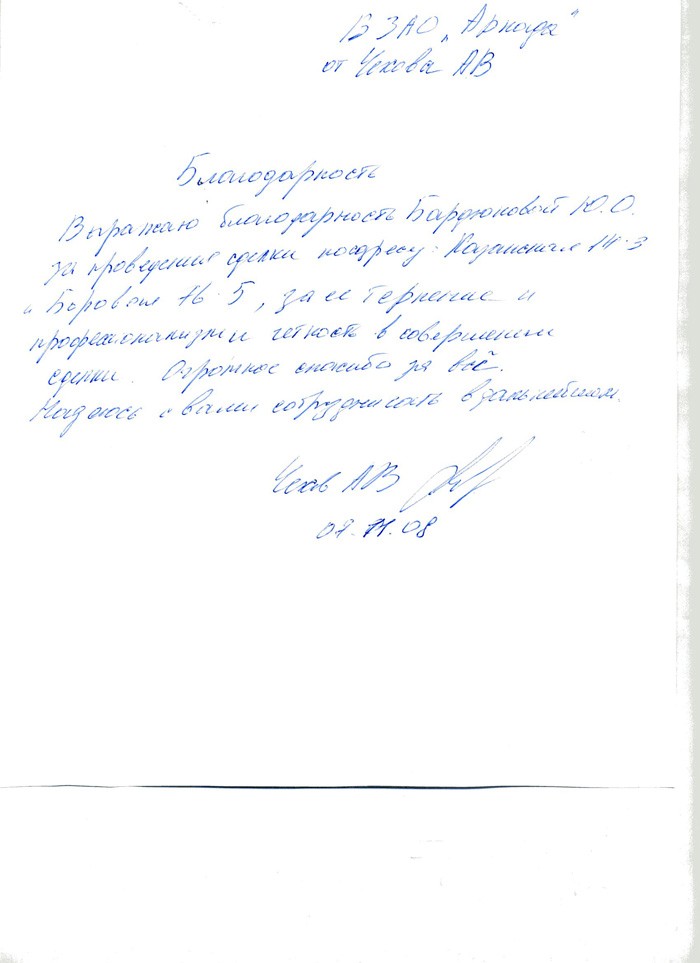 В ЗАО „Аркада"
от Чекова АВ
Благодарность
Выражаю благодарность Бардюковой Ю.О.
за проведение сделки по адресу: Казанская 14-3
и Боровая 16-5, за ее терпение и
профессионализм и четкость в совершении
сделки. Огромное спасибо за всё.
Надеюсь с вами сотрудничать в дальнейшем.
Чеков АВ
07.11.08